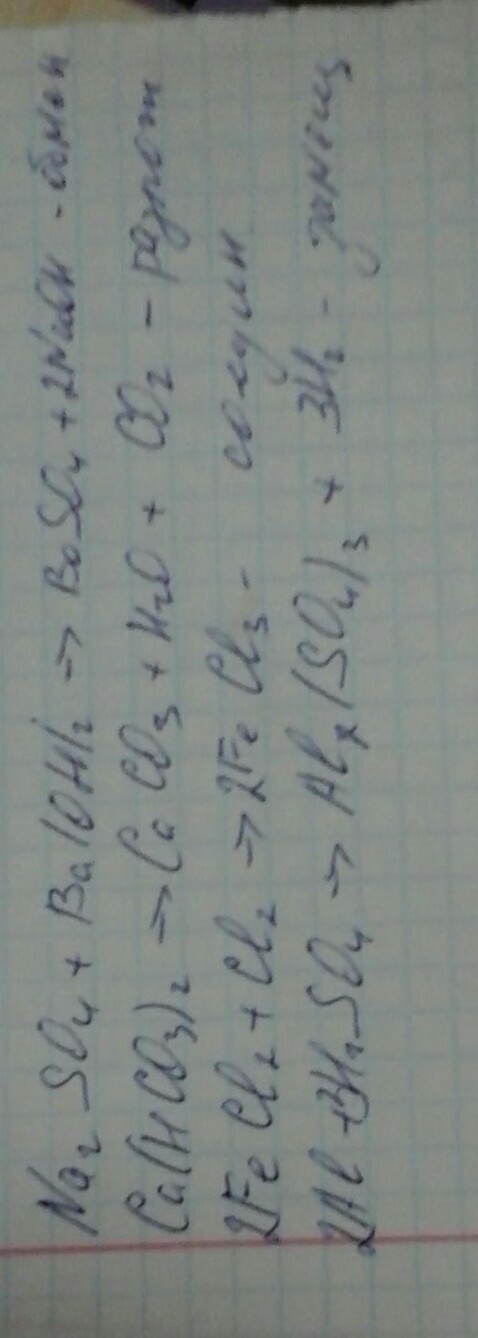 Na₂SO₄ + Ba(OH)₂ => BaSO₄ + 2NaOH - обмен
Ca(HCO₃)₂ => CaCO₃ + H₂O + CO₂ - разлож
2FeCl₂ + Cl₂ => 2FeCl₃ - соедин
2Al + 3H₂SO₄ => Al₂(SO₄)₃ + 3H₂ - замещ